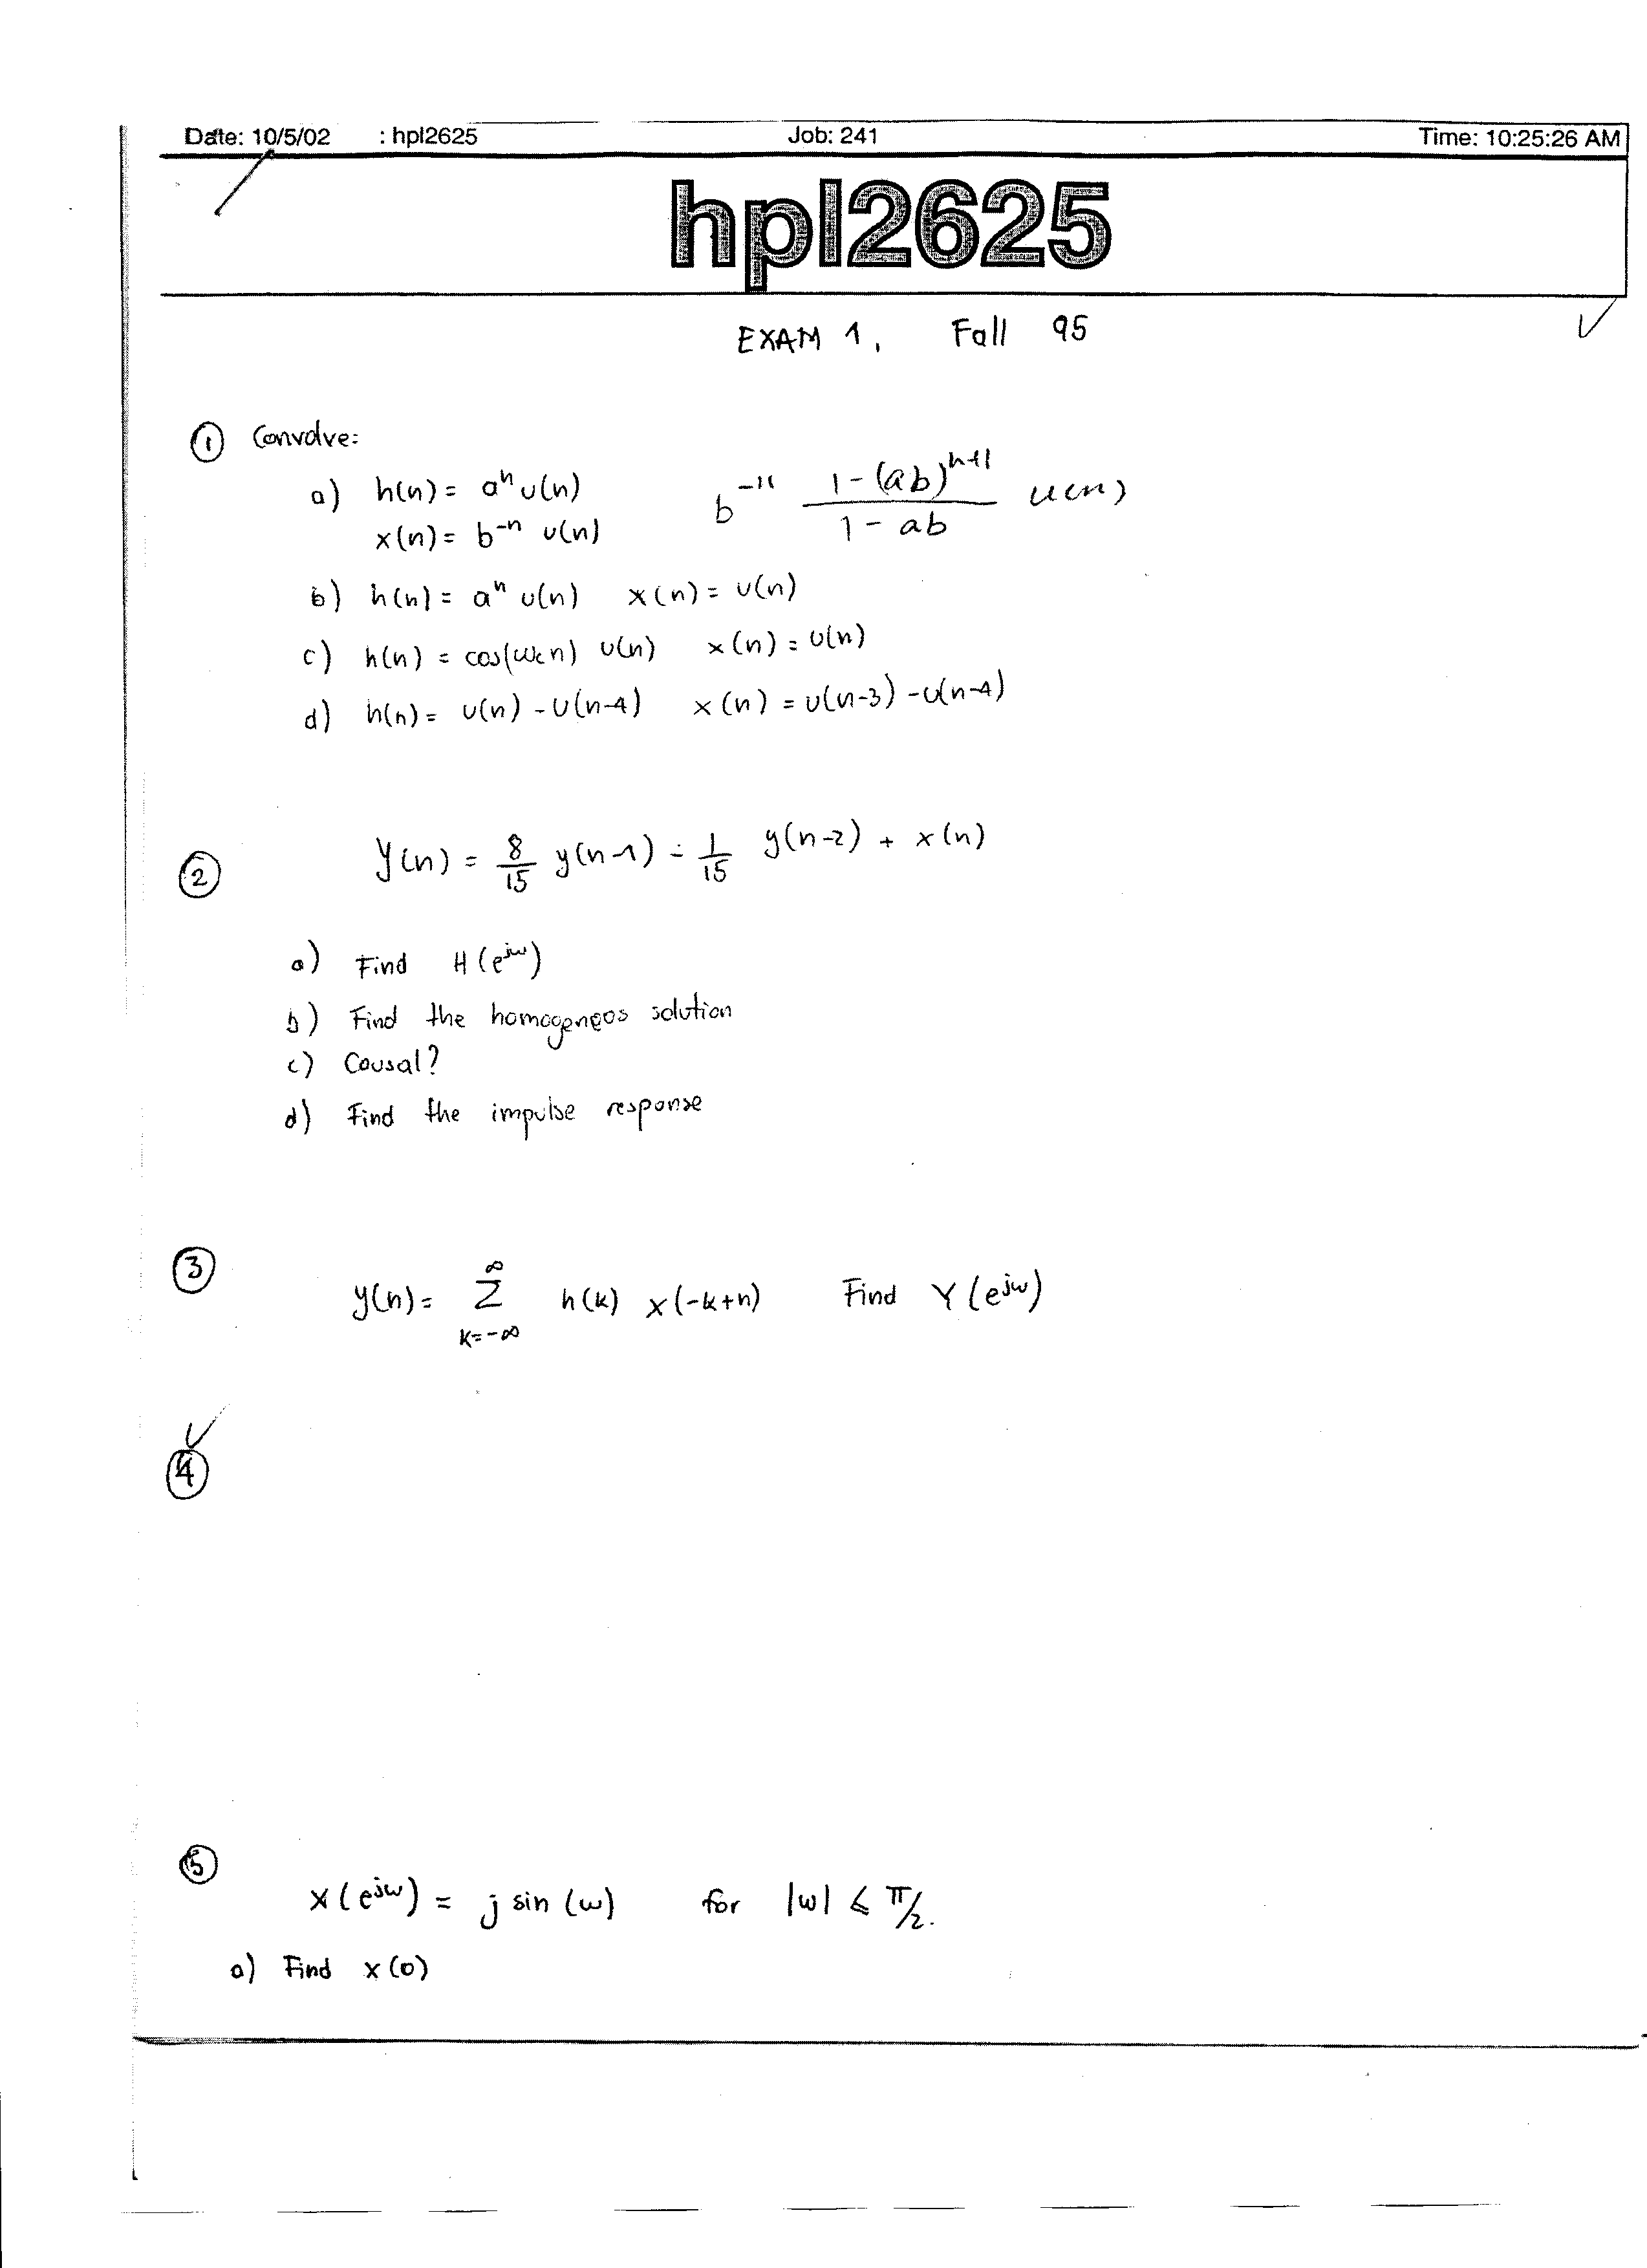 Date: 10/5/02 : hpl2625 Job: 241 Time: 10:25:26 AM
hpl2625
EXAM 1, Fall 95
① Convolve:
a) h(n) = aⁿ u(n) b⁻ⁿ (1 - (ab)ⁿ⁺¹)/(1 - ab) u(n)
x(n) = b⁻ⁿ u(n)
b) h(n) = aⁿ u(n) x(n) = u(n)
c) h(n) = cos(ω₀n) u(n) x(n) = u(n)
d) h(n) = u(n) - u(n-4) x(n) = u(n-3) - u(n-4)
② y(n) = 8/15 y(n-1) - 1/15 y(n-2) + x(n)
a) Find H(e^jω)
b) Find the homogeneos solution
c) Causal?
d) Find the impulse response
③ y(n) = Σ_{k=-∞}^{∞} h(k) x(-k+n) Find Y(e^jω)
④
⑤
X(e^jω) = j sin(ω) for |ω| ≤ π/2.
a) Find x(0)